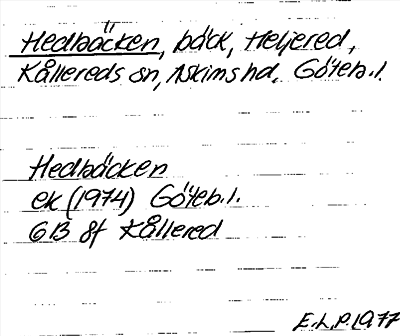 Hedbäcken, bäck, Heljered,
Kållereds sn, Askims hd, Göteb.l.
Hedbäcken
ek (1974) Göteb.l.
6B 8f Kållered
E.L.P. 1977